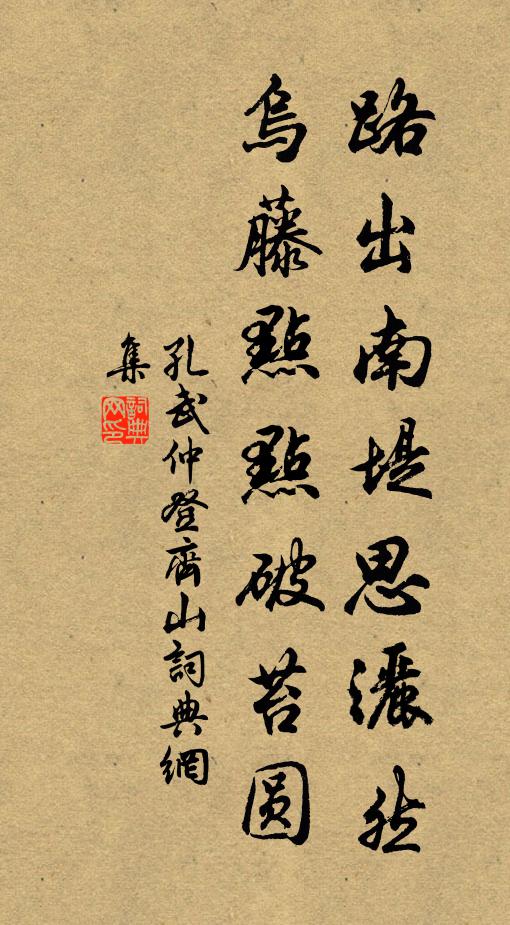 路出南堤思灑然
烏藤點點破苔圓
孔武仲登齊山詞典網
集
詞典
网印